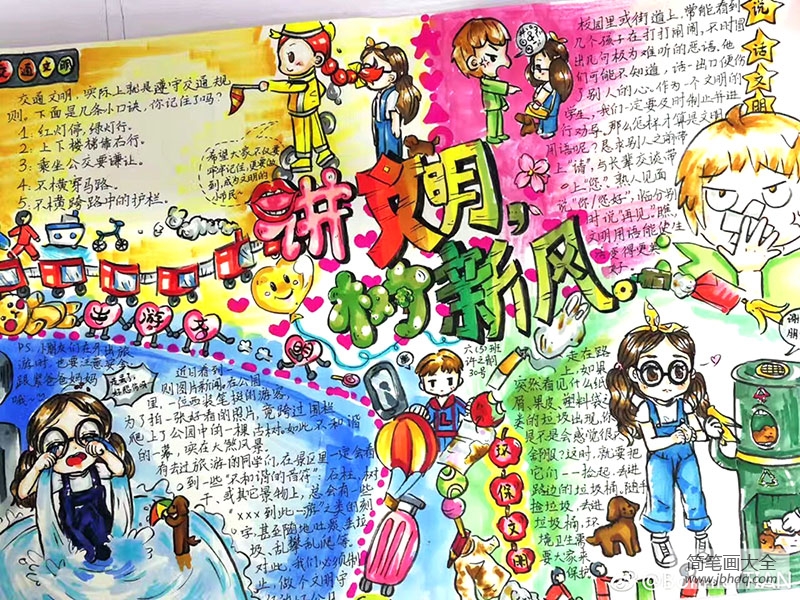 交通文明
交通文明,实际上就是遵守交通规
则。下面是几条小口诀,你记住了吗?
1. 红灯停,绿灯行。
2. 上下楼梯靠右行。
3. 乘坐公交要谦让。
4. 不横穿马路。
5. 不横跨路中的护栏。
希望大家不仅要
牢牢记住,更要做
到,成为文明的
小市民。
讲文明,
树新风。
说话文明
校园里或街道上,常能看到
几个孩子在打打闹闹,不时冒
出几句极为难听的恶语。他
们可能不知道,话一出口便伤
了别人的心。作为一个文明的
学生,我们一定要及时制止并进
行劝导。那么怎样才算是文明
用语呢?恳求别人之前带
上“请”,与长辈交谈带
上“您”?熟人见面
说“你/您好”,临分别
时说“再见”
文明用语能使生
活变得更
出游文明
P.S. 小朋友们在外出旅
游时,也要注意安全
跟紧爸爸妈妈
哦~
近日看到一
则图片新闻,在公园
里,一位西装笔挺的游客,
为了拍一张好看的图片,竟跨过围栏
爬上了公园中的一棵古树。如此不和谐
的一幕,实在大煞风景。
有去过旅游的同学们,在景区里一定会看
到一些“不和谐的音符”:石柱、树
干、或其它景物上,总会有一些
“xxx到此一游”之类的刻
字,甚至随地吐痰、丢垃
圾、乱攀乱爬等。
对此,我们必须制
止,做个文明守
六(5)班
30号
环保文明
走在路
上,如果
突然看见什么纸
屑、果皮、塑料袋之
类的垃圾出现,你
是不是会感觉很
别扭?这时,就要把
它们一一捡起,丢进
路边的垃圾桶,随手
捡垃圾,丢进
垃圾桶,环
境卫生需
要大家来
保护
谢
朋
简笔画大全
www.jbhdq.com